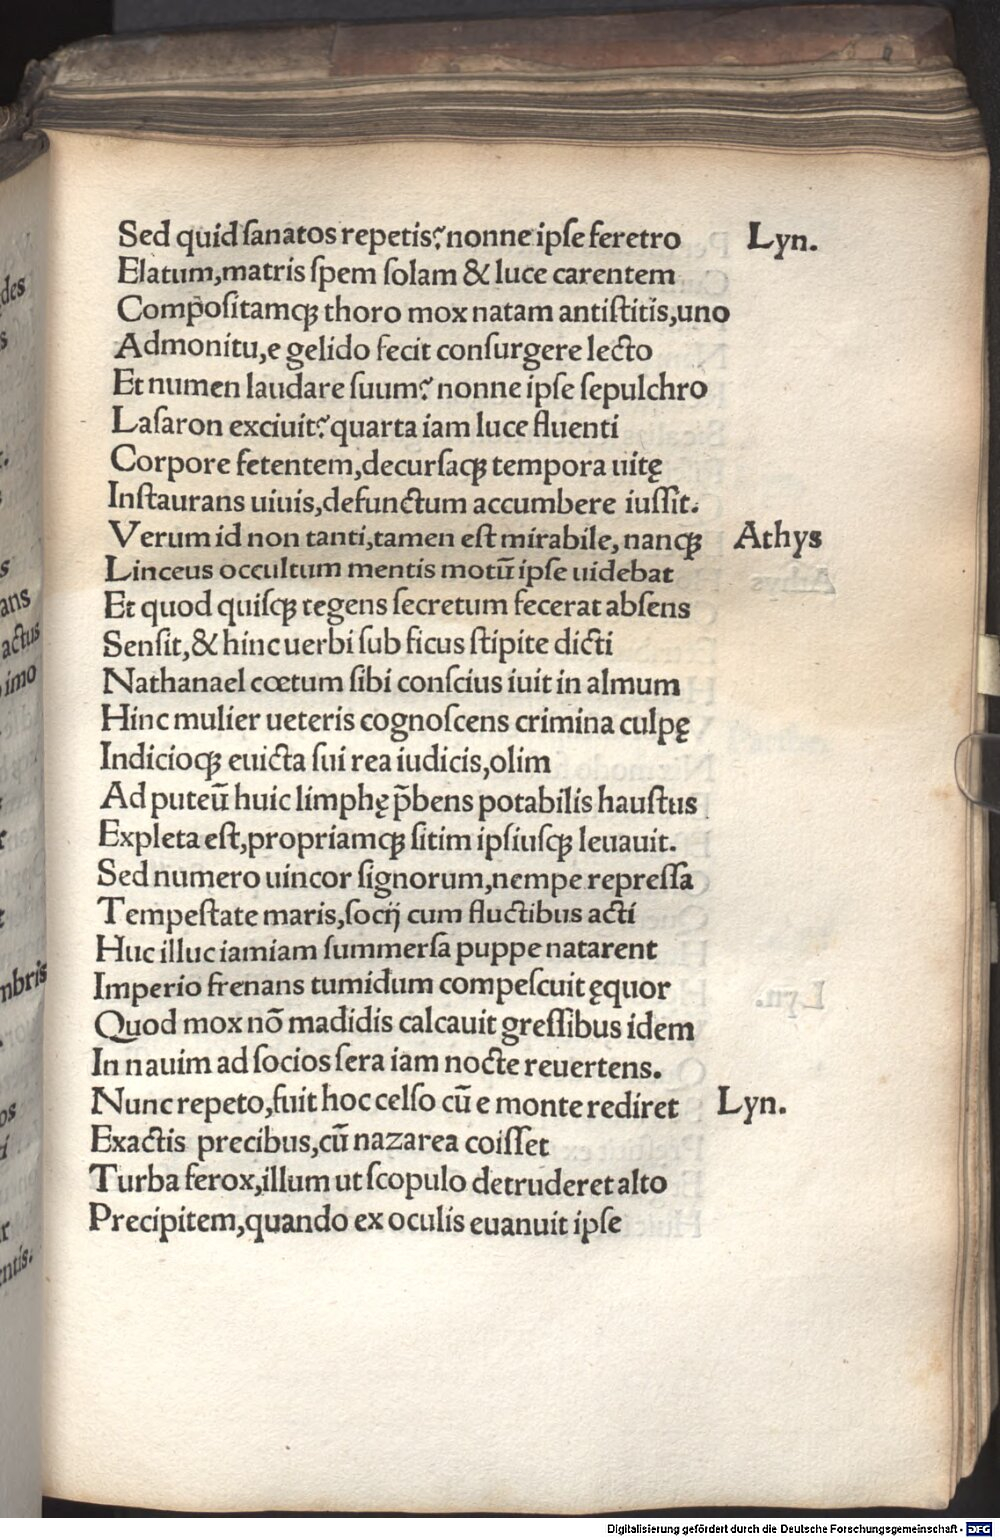 Sed quid ſanatos repetis? nonne ipſe feretro Lyn.
Elatum, matris ſpem ſolam & luce carentem
Compoſitamqꝫ thoro mox natam antiſtitis, uno
Admonitu, e gelido fecit conſurgere lecto
Et numen laudare ſuum? nonne ipſe ſepulchro
Laſaron exciuit? quarta iam luce fluenti
Corpore fetentem, decurſaqꝫ tempora uitę
Inſtaurans uiuis, defunctum accumbere iuſſit.
Verum id non tanti, tamen eſt mirabile, nanqꝫ Athys
Linceus occultum mentis motū ipſe uidebat
Et quod quiſqꝫ tegens ſecretum fecerat abſens
Senſit, & hinc uerbi ſub ficus ſtipite dicti
Nathanael cœtum ſibi conſcius iuit in almum
Hinc mulier ueteris cognoſcens crimina culpę
Indicioqꝫ euicta ſui rea iudicis, olim
Ad puteū huic limphę p̄bens potabilis hauſtus
Expleta eſt, propriamqꝫ ſitim ipſiuſqꝫ leuauit.
Sed numero uincor ſignorum, nempe repreſſa
Tempeſtate maris, ſocij cum fluctibus acti
Huc illuc iamiam ſummerſa puppe natarent
Imperio frenans tumidum compeſcuit ęquor
Quod mox nō madidis calcauit greſſibus idem
In nauim ad ſocios ſera iam nocte reuertens.
Nunc repeto, fuit hoc celſo cū e monte rediret Lyn.
Exactis precibus, cū nazarea coiſſet
Turba ferox, illum ut ſcopulo detruderet alto
Precipitem, quando ex oculis euanuit ipſe
Digitalisierung gefördert durch die Deutsche Forschungsgemeinschaft - DFG